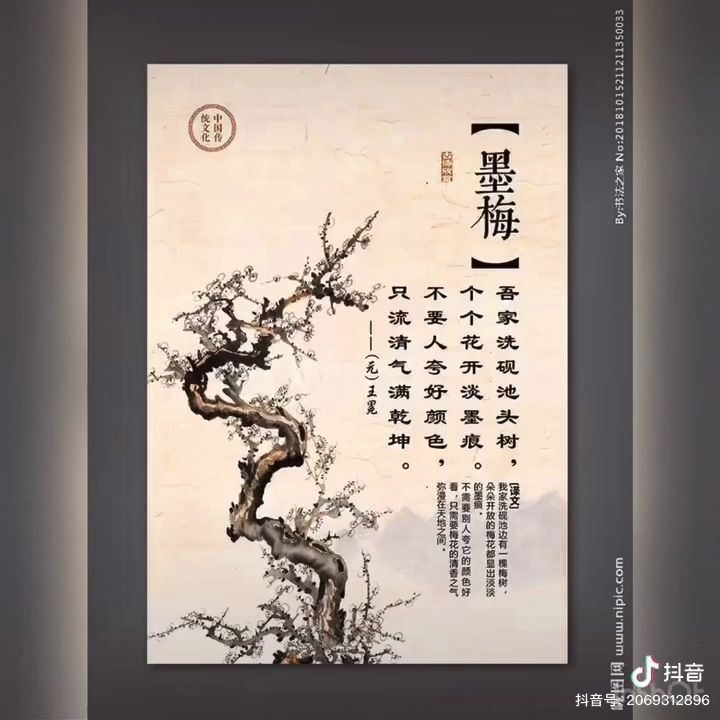 中国传
统文化
【墨梅】
吾家洗砚池头树，
个个花开淡墨痕。
不要人夸好颜色，
只流清气满乾坤。
——（元）王冕
【译文】
我家洗砚池边有一棵梅树，
朵朵开放的梅花都显出淡淡
的墨痕。
不需要别人夸它的颜色好
看，只需要梅花的清香之气
弥漫在天地之间。
By:书法之家 No:20181015211211350033
昵图网 www.nipic.com
抖音
抖音号：2069312896